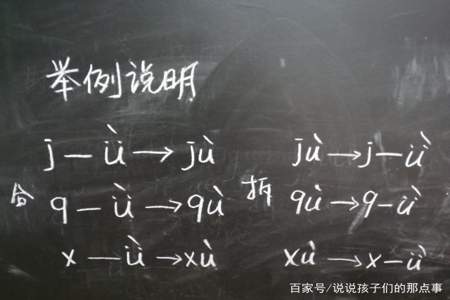 举例说明
j — ǜ → jù jù → j — ǜ
合 q — ǜ → qù 拆 qù → q — ǜ
x — ǜ → xù xù → x — ǜ
百家号/说说孩子们的那点事